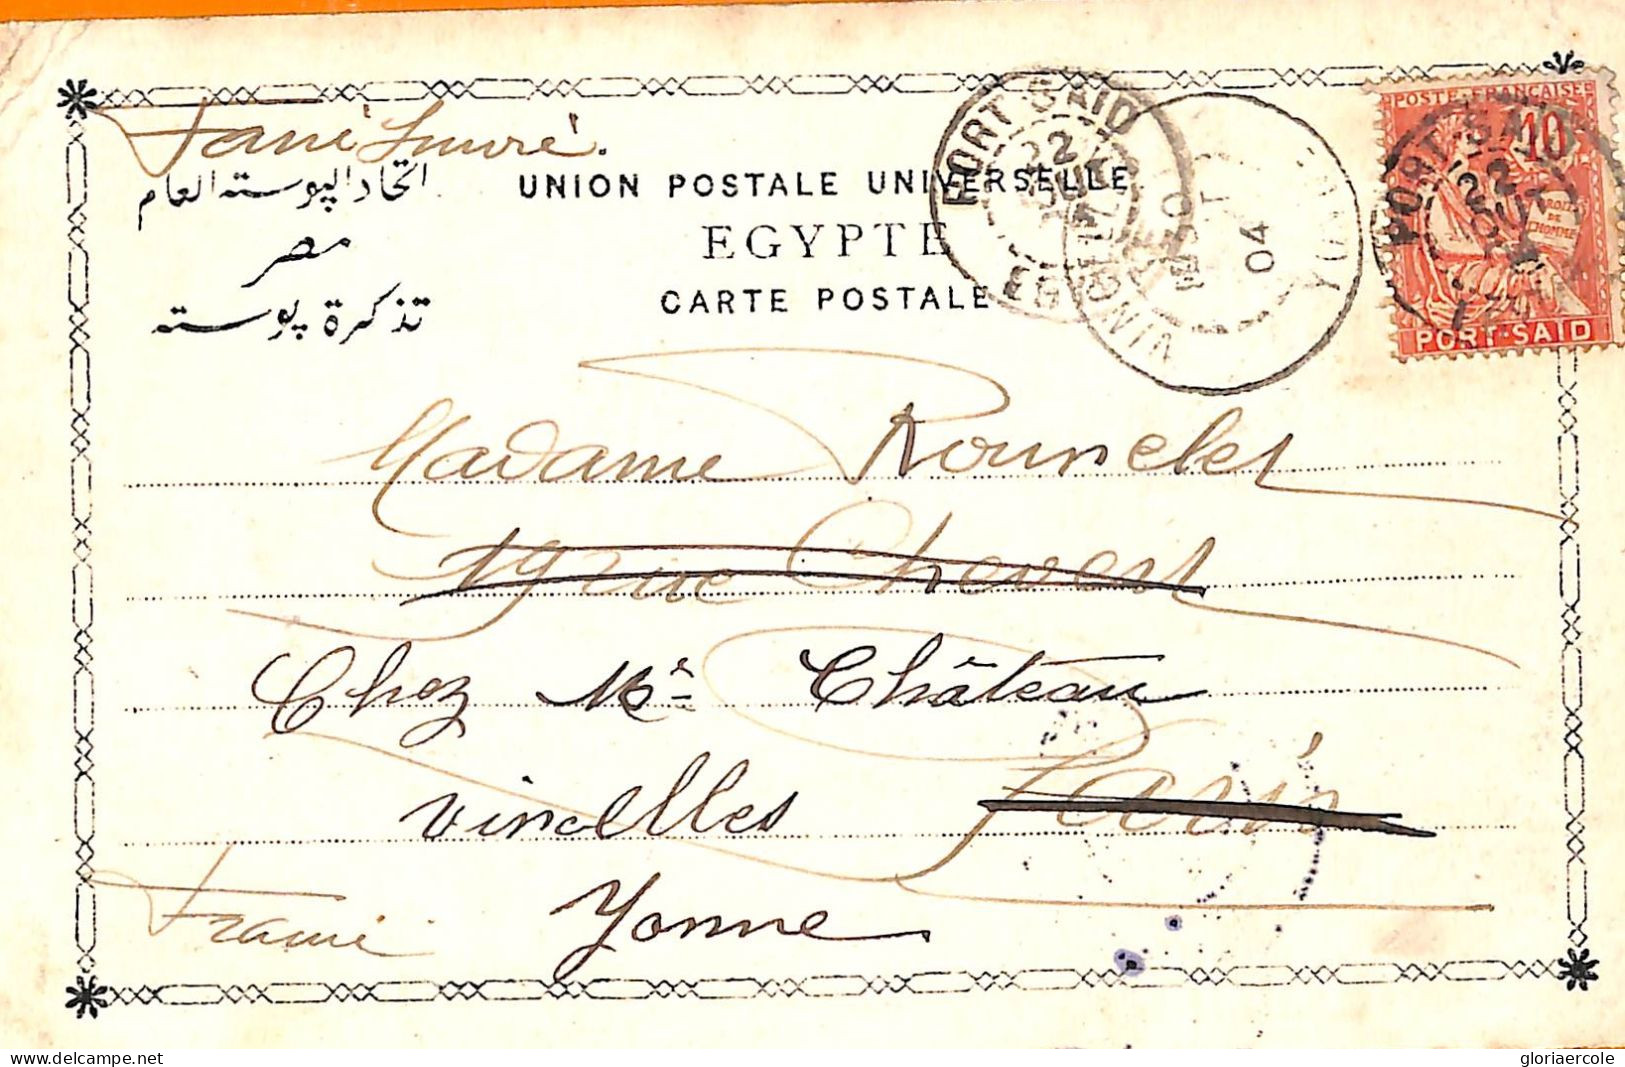 اتحاد البوستة العام
UNION POSTALE UNIVERSELLE
مصر
EGYPTE
تذكرة بوستة
CARTE POSTALE
PORT SAID
22
PORT SAID
22
AOUT
04
YONNE
POSTE FRANÇAISE
10
DROITS DE L'HOMME
PORT-SAID
Madame
19 rue Chevert
Chez Mr Château
Vincelles Paris
Yonne
gloriaercole